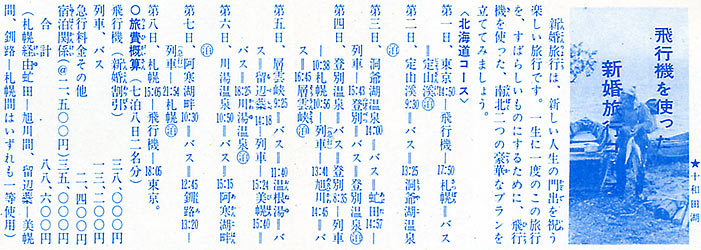 ★十和田湖
飛行機を使った
新婚旅行
新婚旅行は、新しい人生の門出を祝う
楽しい旅行です。一生に一度のこの旅行
を、すばらしいものにするために、飛行
機を使った、南北二つの豪華なプランを
立ててみましょう。
〈北海道コース〉
第一日、東京14:50―飛行機―17:50札幌=バス
=定山渓㊡
第二日、定山渓9:30=バス=13:25洞爺湖温泉
泊
第三日、洞爺湖温泉14:00=バス=虻田14:57―
列車―15:43登別=バス=登別温泉泊
第四日、登別温泉=バス=登別8:35―列車
―10:38札幌10:56―列車―13:41旭川14:45=バ
ス=層雲峡泊
第五日、層雲峡9:25=バス=11:40温根湯=バ
ス=留辺蘂14:18―列車―15:24美幌15:40=
バス=18:25川湯温泉泊
第六日、川湯温泉10:50=バス=15:15阿寒湖畔
泊
第七日、阿寒湖畔10:30=バス=12:45釧路13:20―
列車―21:54札幌泊
第八日、札幌15:05―飛行機―18:05東京。
○旅費概算(七泊八日二名分)
飛行機(新婚割引) 三八、〇〇〇円
列車、バス 一三、二〇〇円
急行料金その他 二、四〇〇円
宿泊関係(@二、五〇〇円)三五、〇〇〇円
合計 八八、六〇〇円
(札幌経由虻田―旭川間、留辺蘂―美幌
間、釧路―札幌間はいずれも一等使用)